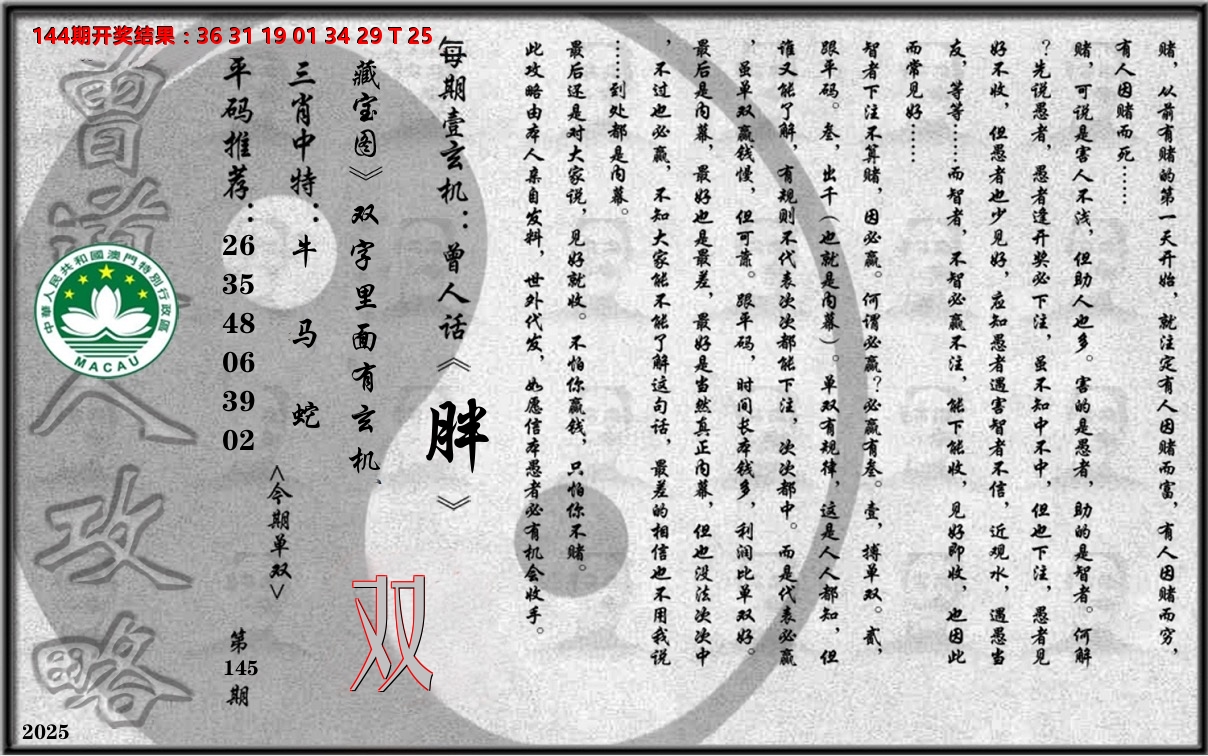 144期开奖结果：36 31 19 01 34 29 T 25
赌，从前有赌的第一天开始，就注定有人因赌而富，有人因赌而穷，
有人因赌而死……
赌，可说是害人不浅，但助人也多。害的是愚者，助的是智者。何解
？先说愚者，愚者逢开奖必下注，虽不知中不中，但也下注，愚者见
好不收，但愚者也少见好，应知愚者遇害智者不信，近观水，遇愚当
友，等等……而智者，不智必赢不注，能下能收，见好即收，也因此
而常见好……
智者下注不算赌，因必赢。何谓必赢？必赢有叁。壹，搏单双。贰，
跟平码。叁，出千（也就是内幕）。单双有规律，这是人人都知，但
谁又能了解，有规则不代表次次都能下注，次次都中。而是代表必赢
，虽单双赢钱慢，但可靠。跟平码，时间长本钱多，利润比单双好。
最后是内幕，最好也是最差，最好是当然真正内幕，但也没法次次中
，不过也必赢，不知大家能不能了解这句话，最差的相信也不用我说
……到处都是内幕。
最后还是对大家说，见好就收。不怕你赢钱，只怕你不赌。
此攻略由本人亲自发料，世外代发，如愿信本愚者必有机会收手。
每期壹玄机：曾人话《胖》
藏宝图》双字里面有玄机、
双
三肖中特：牛 马 蛇
<今期单双>
平码推荐：26 35 48 06 39 02
第145期
曾道人攻略
中華人民共和國澳門特別行政區
MACAU
2025